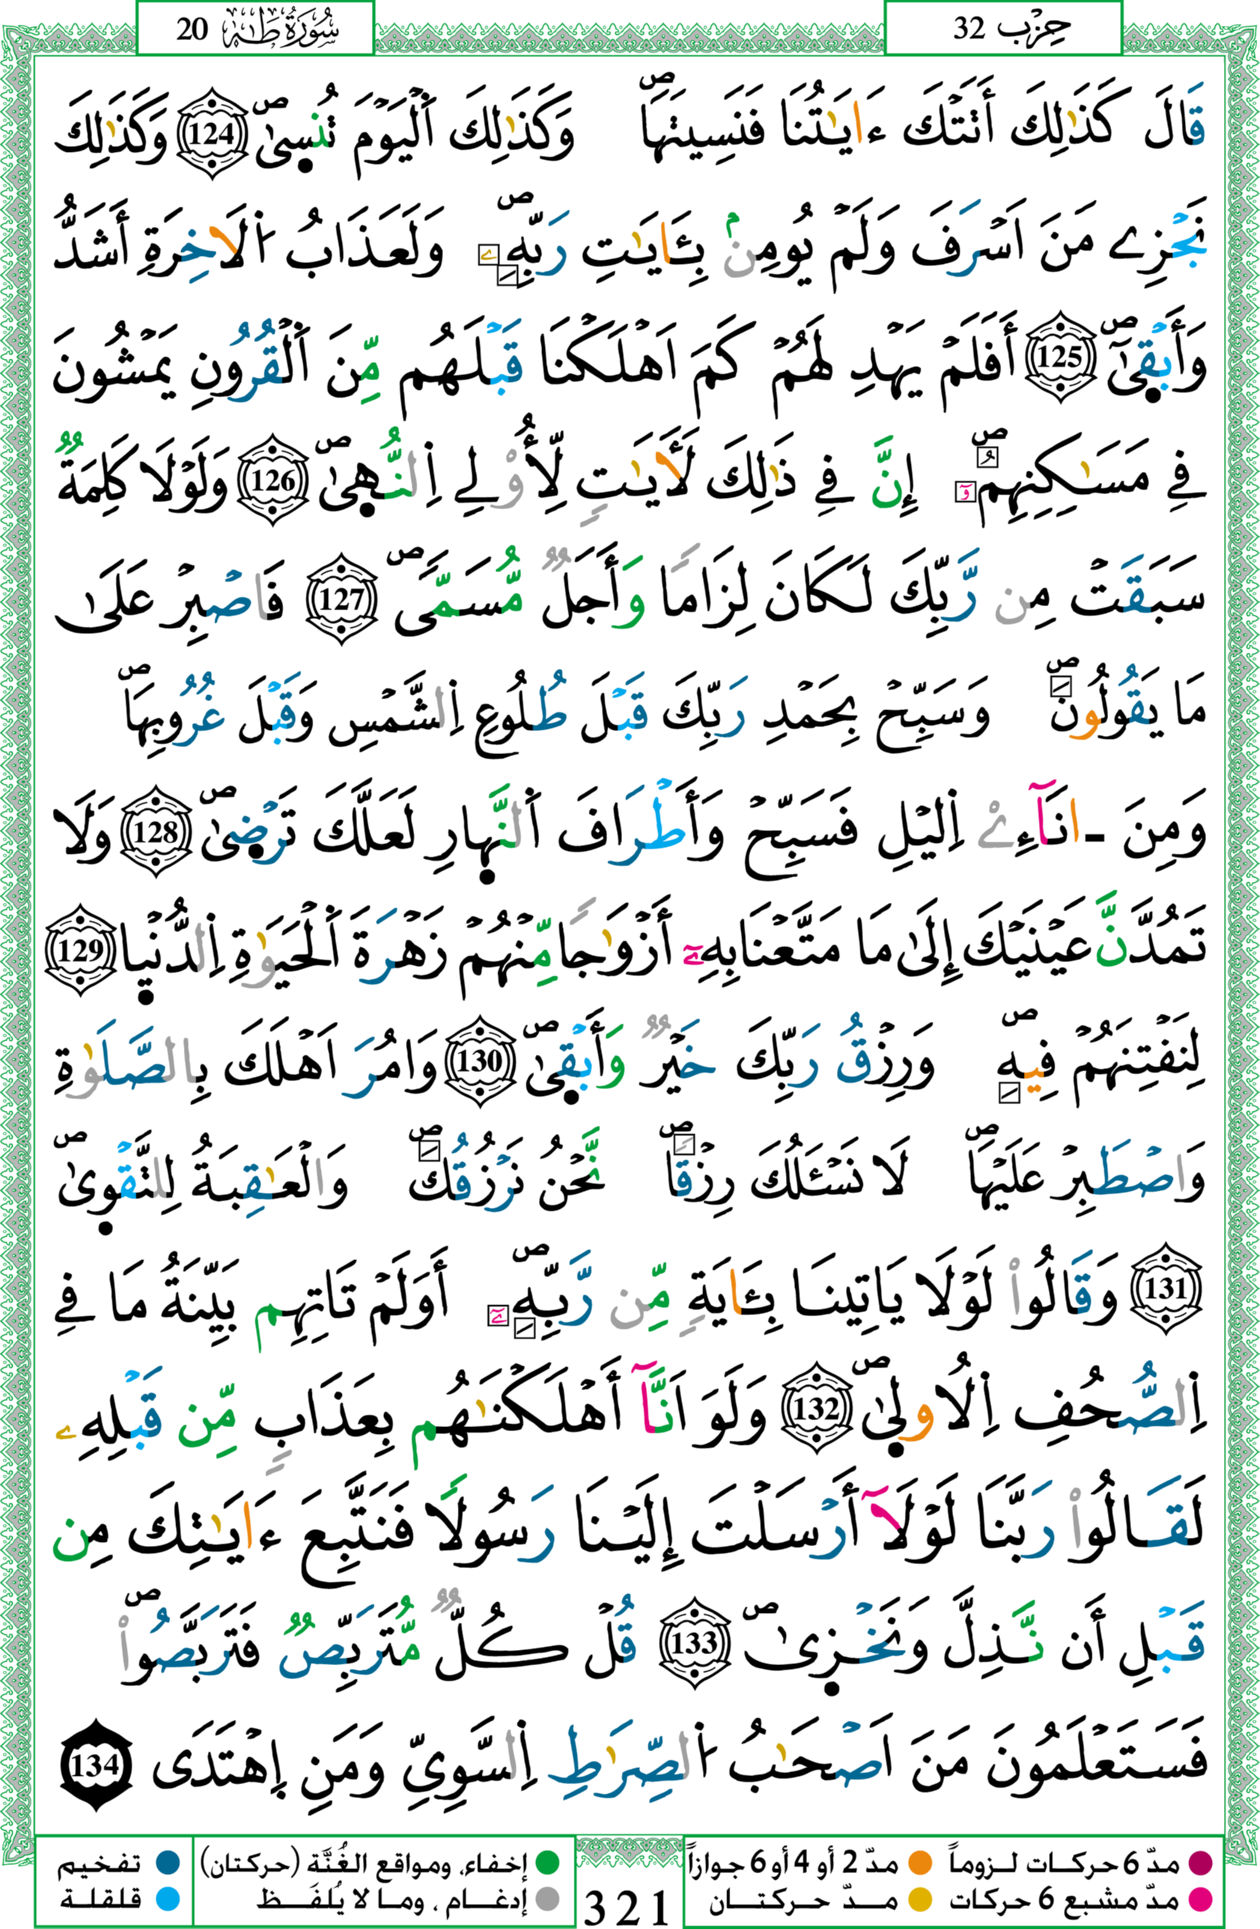 سُورَةُ طَهَ 20
حِزْب 32
قَالَ كَذَٰلِكَ أَتَتْكَ ءَايَٰتُنَا فَنَسِيتَهَاۖ وَكَذَٰلِكَ اَ۬لْيَوْمَ تُنس۪يٰۖ 124 وَكَذَٰلِكَ
نَجْزِے مَنَ اَسْرَفَ وَلَمْ يُومِنۢ بِـَٔايَٰتِ رَبِّهِۦۖ وَلَعَذَابُ اُ۬لَاخِرَةِ أَشَدُّ
وَأَبْق۪يٰٓۖ 125 أَفَلَمْ يَهْدِ لَهُمْ كَمَ اَهْلَكْنَا قَبْلَهُم مِّنَ اَ۬لْقُرُونِ يَمْشُونَ
فِے مَسَٰكِنِهِمُۥٓۖ إِنَّ فِے ذَٰلِكَ لَأٓيَٰتٖ لِّأُوْلِے اِ۬لنُّه۪يٰۖ 126 وَلَوْلَا كَلِمَةٞ
سَبَقَتْ مِن رَّبِّكَ لَكَانَ لِزَاماٗ وَأَجَلٞ مُّسَمّيٗۖ 127 فَاصْبِرْ عَلَىٰ
مَا يَقُولُونَۖ وَسَبِّحْ بِحَمْدِ رَبِّكَ قَبْلَ طُلُوعِ اِ۬لشَّمْسِ وَقَبْلَ غُرُوبِهَاۖ
وَمِنَ ـ انَآءِےْ اِ۬ليْلِ فَسَبِّحْ وَأَطْرَافَ اَ۬لنَّه۪ارِ لَعَلَّكَ تَرْض۪يٰۖ 128 وَلَا
تَمُدَّنَّ عَيْنَيْكَ إِلَىٰ مَا مَتَّعْنَا بِهِۦٓ أَزْوَٰجاٗ مِّنْهُمْ زَهْرَةَ اَ۬لْحَيَوٰةِ اِ۬لدُّنْي۪ا 129
لِنَفْتِنَهُمْ فِيهِۖ وَرِزْقُ رَبِّكَ خَيْرٞ وَأَبْق۪يٰۖ 130 وَامُرَ اَهْلَكَ بِالصَّلَوٰةِ
وَاصْطَبِرْ عَلَيْهَاۖ لَا نَسْـَٔلُكَ رِزْقاٗۖ نَّحْنُ نَرْزُقُكَۖ وَالْعَٰقِبَةُ لِلتَّقْو۪يٰۖ
131 وَقَالُواْ لَوْلَا يَاتِينَا بِـَٔايَةٖ مِّن رَّبِّهِۦٓۖ أَوَلَمْ تَاتِهِم بَيِّنَةُ مَا فِے
اِ۬لصُّحُفِ اِ۬لُاول۪يٰۖ 132 وَلَوَ اَنَّآ أَهْلَكْنَٰهُم بِعَذَابٖ مِّن قَبْلِهِۦ
لَقَالُواْ رَبَّنَا لَوْلَآ أَرْسَلْتَ إِلَيْنَا رَسُولاٗ فَنَتَّبِعَ ءَايَٰتِكَ مِن
قَبْلِ أَن نَّذِلَّ وَنَخْز۪يٰۖ 133 قُلْ كُلّٞ مُّتَرَبِّصٞ فَتَرَبَّصُواْۖ
فَسَتَعْلَمُونَ مَنَ اَصْحَٰبُ اُ۬لصِّرَٰطِ اِ۬لسَّوِيِّ وَمَنِ اِ۪هْتَدَىٰ 134
مدّ 6 حركات لـزوماً مدّ 2 أو 4 أو 6 جوازاً إخفاء، ومواقع الغُنَّة (حركتان) تفخيم
مدّ مشبع 6 حركات مــدّ حركتــان إدغـام ، ومـا لا يُلفَـظ قلقلـة
321